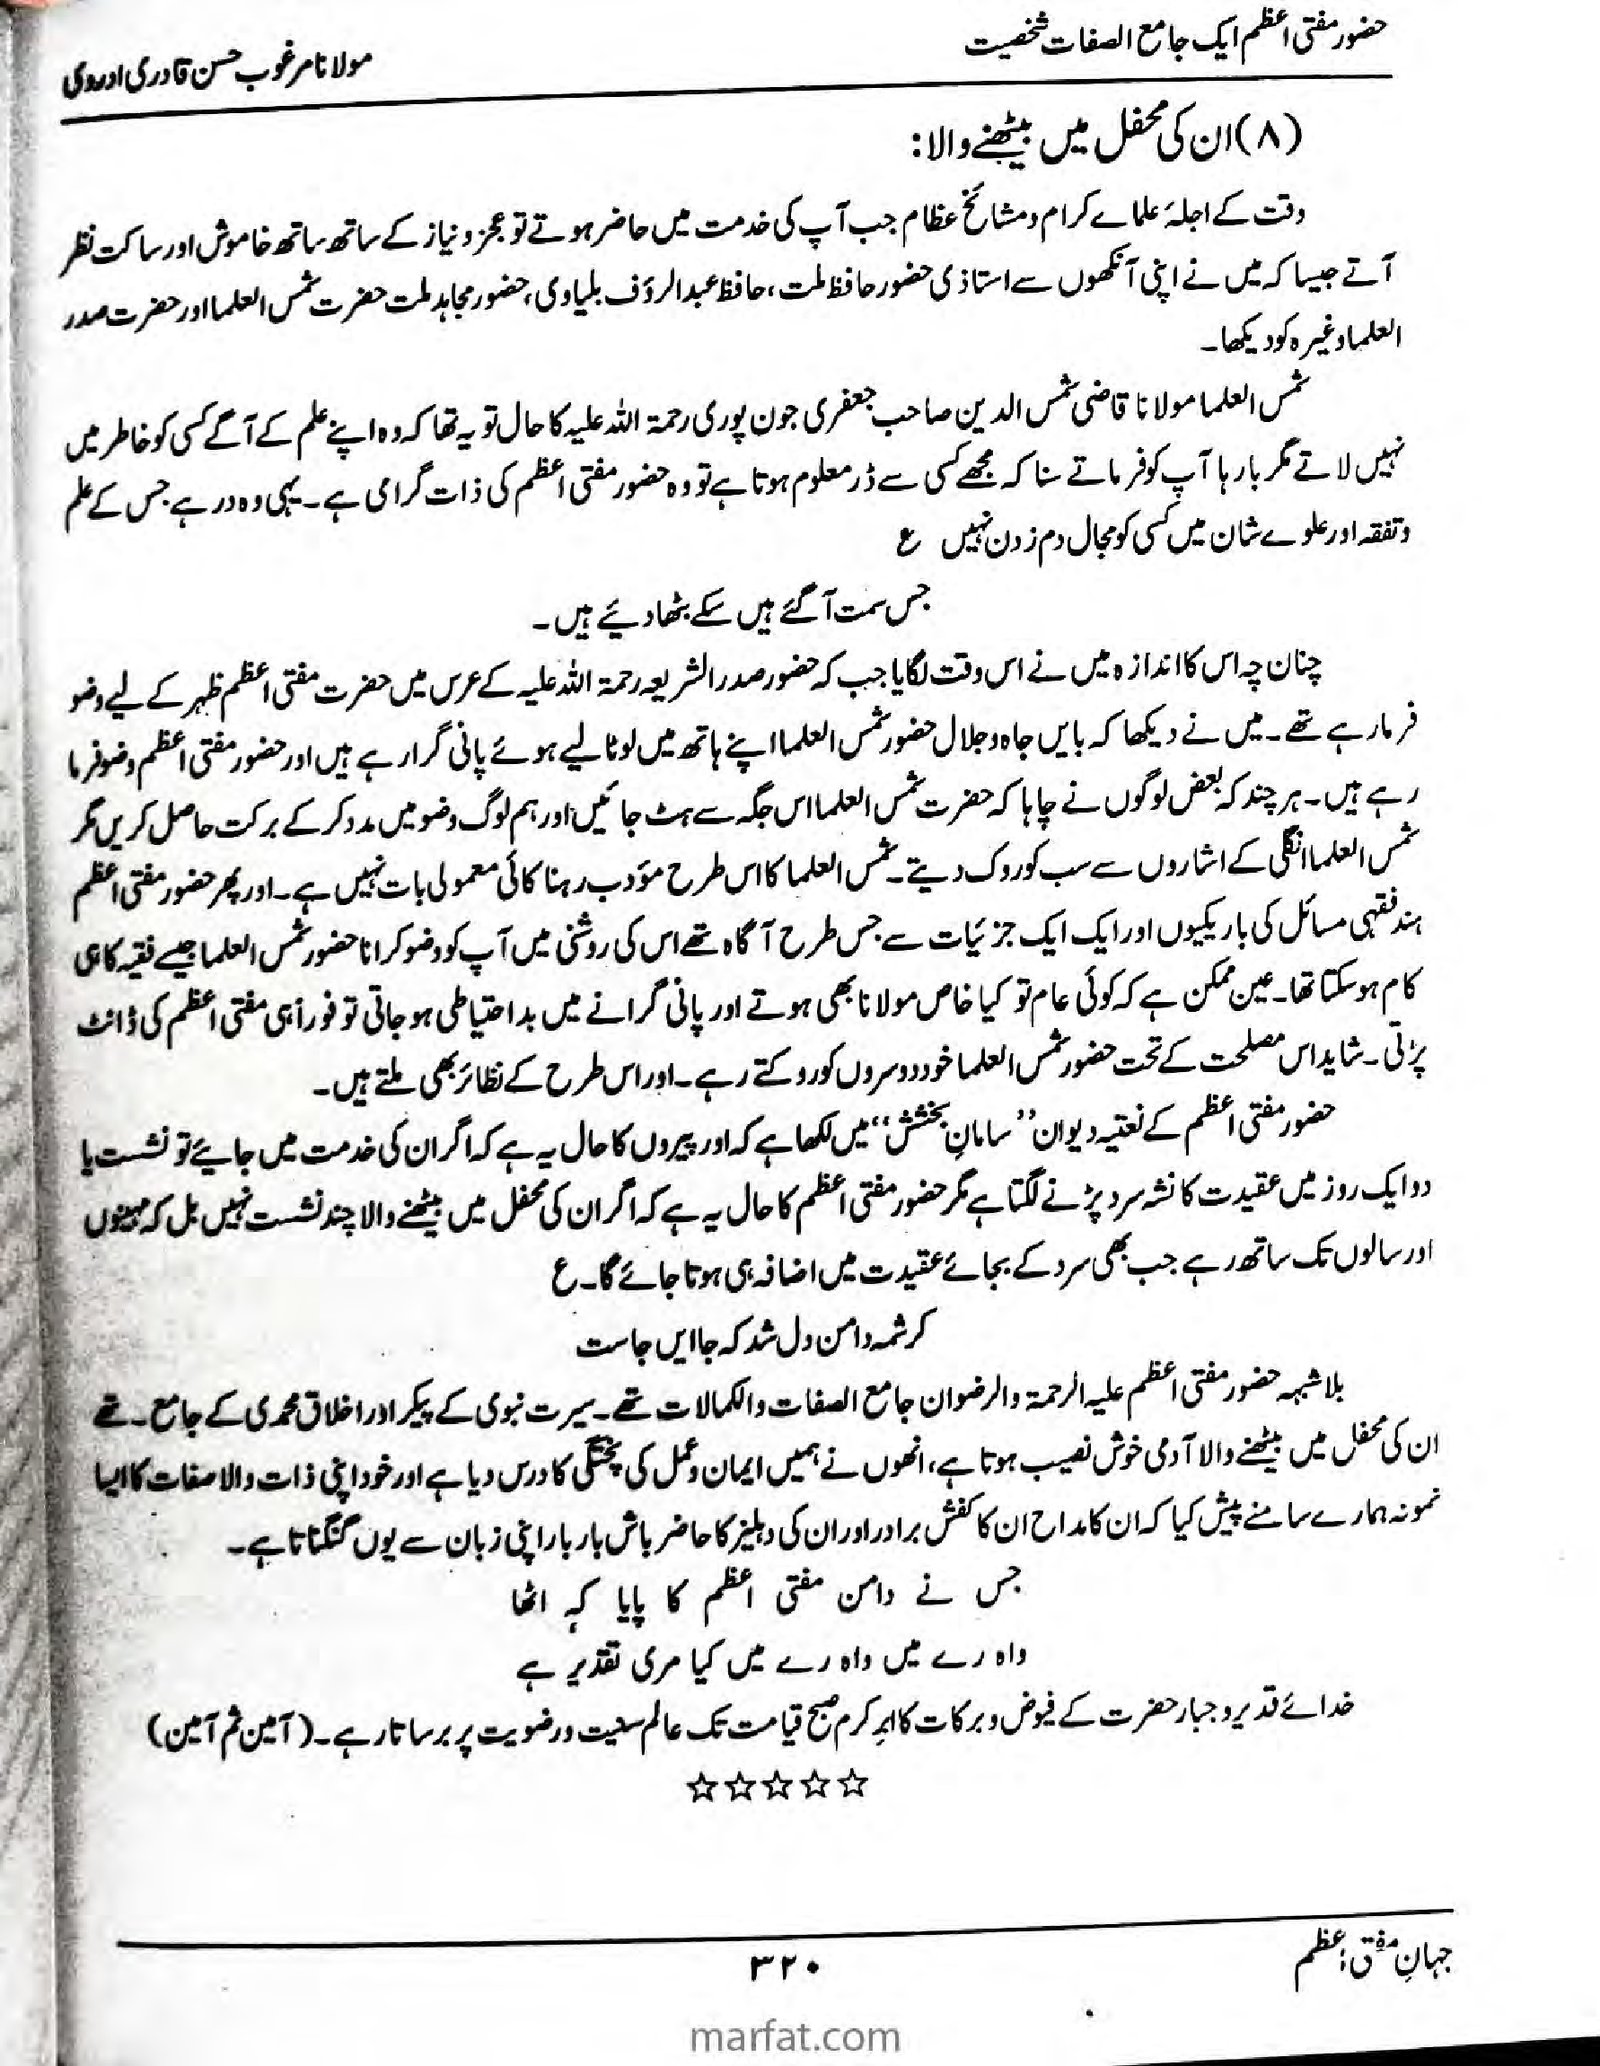 حضور مفتی اعظم ایک جامع الصفات شخصیت
مولانا مرغوب حسن قادری ادروی
(۸) ان کی محفل میں بیٹھنے والا:
وقت کے اجلۂ علمائے کرام و مشائخ عظام جب آپ کی خدمت میں حاضر ہوتے تو عجز و نیاز کے ساتھ ساتھ خاموش اور ساکت نظر
آتے جیسا کہ میں نے اپنی آنکھوں سے استاذی حضور حافظ ملت، حافظ عبد الرؤف بلیاوی، حضور مجاہد ملت حضرت شمس العلما اور حضرت صدر
العلما وغیرہ کو دیکھا۔
شمس العلما مولانا قاضی شمس الدین صاحب جعفری جون پوری رحمۃ اللہ علیہ کا حال تو یہ تھا کہ وہ اپنے علم کے آگے کسی کو خاطر میں
نہیں لاتے مگر بارہا آپ کو فرماتے سنا کہ مجھے کسی سے ڈر معلوم ہوتا ہے تو وہ حضور مفتی اعظم کی ذات گرامی ہے۔ یہی وہ در ہے جس کے علم
و تفقہ اور علوے شان میں کسی کو مجال دم زدن نہیں ع
جس سمت آ گئے ہیں سکے بٹھا دیئے ہیں۔
چنان چہ اس کا اندازہ میں نے اس وقت لگایا جب کہ حضور صدر الشریعہ رحمۃ اللہ علیہ کے عرس میں حضرت مفتی اعظم ظہر کے لیے وضو
فرما رہے تھے۔ میں نے دیکھا کہ بایں جاہ و جلال حضور شمس العلما اپنے ہاتھ میں لوٹا لیے ہوئے پانی گرا رہے ہیں اور حضور مفتی اعظم وضو فرما
رہے ہیں۔ ہر چند کہ بعض لوگوں نے چاہا کہ حضرت شمس العلما اس جگہ سے ہٹ جائیں اور ہم لوگ وضو میں مدد کر کے برکت حاصل کریں مگر
شمس العلما انگلی کے اشاروں سے سب کو روک دیتے۔ شمس العلما کا اس طرح مؤدب رہنا کائی معمولی بات نہیں ہے۔ اور پھر حضور مفتی اعظم
ہند فقہی مسائل کی باریکیوں اور ایک ایک جزئیات سے جس طرح آگاہ تھے اس کی روشنی میں آپ کو وضو کرانا حضور شمس العلما جیسے فقیہ کا ہی
کام ہو سکتا تھا۔ عین ممکن ہے کہ کوئی عام تو کیا خاص مولانا بھی ہوتے اور پانی گرانے میں بد احتیاطی ہو جاتی تو فوراً ہی مفتی اعظم کی ڈانٹ
پڑتی۔ شاید اس مصلحت کے تحت حضور شمس العلما خود دوسروں کو روکتے رہے۔ اور اس طرح کے نظائر بھی ملتے ہیں۔
حضور مفتی اعظم کے نعتیہ دیوان ”سامانِ بخشش“ میں لکھا ہے کہ اور پیروں کا حال یہ ہے کہ اگر ان کی خدمت میں جایئے تو نشست یا
دو ایک روز میں عقیدت کا نشہ سرد پڑنے لگتا ہے مگر حضور مفتی اعظم کا حال یہ ہے کہ اگر ان کی محفل میں بیٹھنے والا چند نشست نہیں بل کہ مہینوں
اور سالوں تک ساتھ رہے جب بھی سرد کے بجائے عقیدت میں اضافہ ہی ہوتا جائے گا۔ ع
کرشمہ دامن دل شد کہ جا ایں جاست
بلا شبہہ حضور مفتی اعظم علیہ الرحمۃ والرضوان جامع الصفات والکمالات تھے۔ سیرت نبوی کے پیکر اور اخلاق محمدی کے جامع۔ تھے
ان کی محفل میں بیٹھنے والا آدمی خوش نصیب ہوتا ہے، انھوں نے ہمیں ایمان و عمل کی پختگی کا درس دیا ہے اور خود اپنی ذات والا صفات کا ایسا
نمونہ ہمارے سامنے پیش کیا کہ ان کا مداح ان کا کفش بردار اور ان کی دہلیز کا حاضر باش بار بار اپنی زبان سے یوں گنگناتا ہے۔
جس نے دامن مفتی اعظم کا پایا کہہ اٹھا
واہ رے میں واہ رے میں کیا مری تقدیر ہے
خدائے قدیر و جبار حضرت کے فیوض و برکات کا ابرِ کرم صبح قیامت تک عالم سنیت و رضویت پر برساتا رہے۔ (آمین ثم آمین)
☆☆☆☆☆
جہانِ مفتی اعظم
۳۲۰
marfat.com